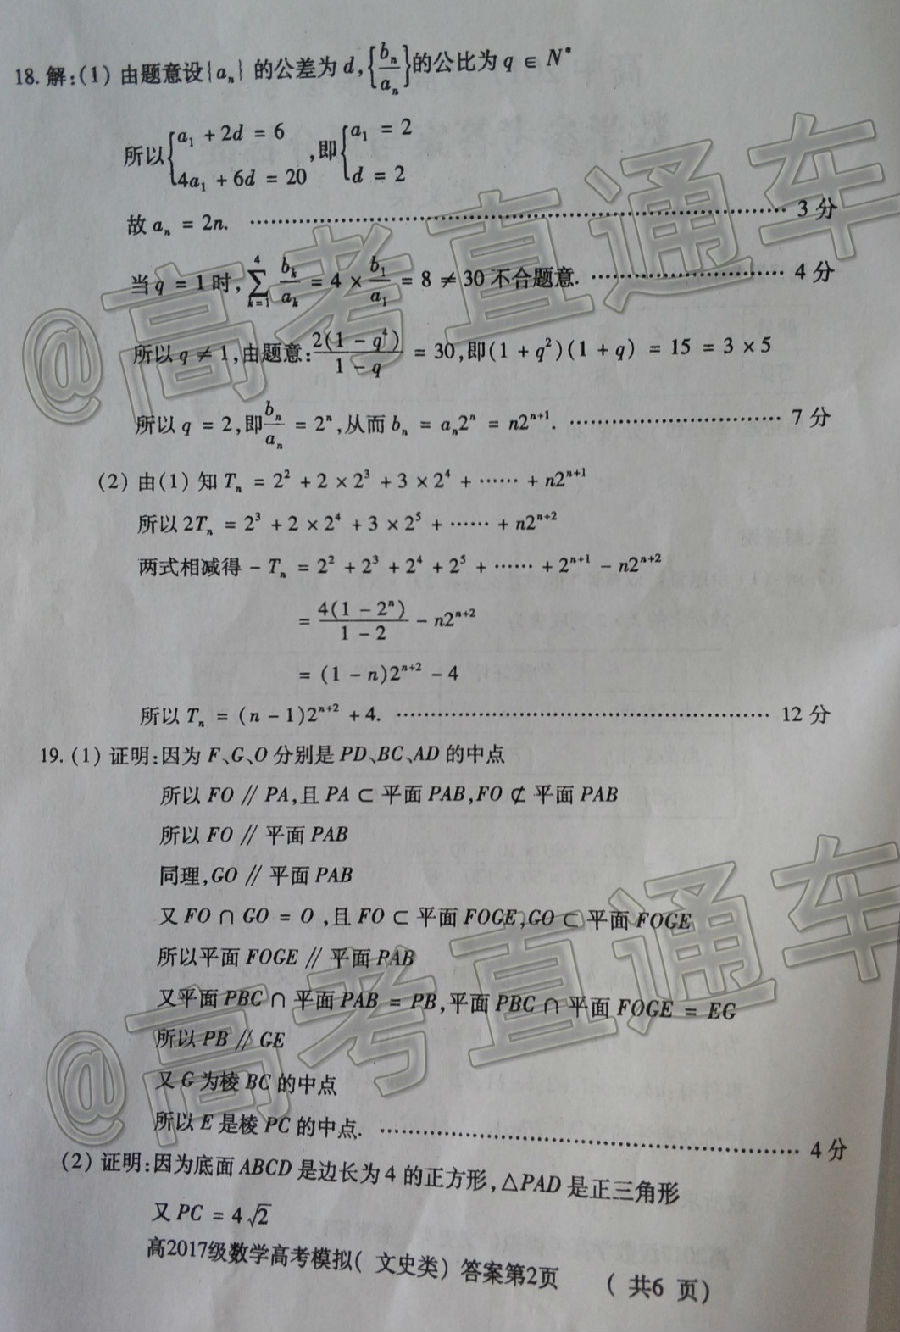 18.解:(1)由题意设{aₙ}的公差为d,{bₙ/aₙ}的公比为q∈N*
所以{a₁+2d=6, 4a₁+6d=20,即{a₁=2, d=2
故aₙ=2n. ……………………………… 3分
当q=1时,∑(k=1→4) bₖ/aₖ=4×b₁/a₁=8≠30不合题意. ……………… 4分
所以q≠1,由题意:2(1-q⁴)/(1-q)=30,即(1+q²)(1+q)=15=3×5
所以q=2,即bₙ/aₙ=2ⁿ,从而bₙ=aₙ2ⁿ=n2ⁿ⁺¹. ……………… 7分
(2)由(1)知Tₙ=2²+2×2³+3×2⁴+……+n2ⁿ⁺¹
所以2Tₙ=2³+2×2⁴+3×2⁵+……+n2ⁿ⁺²
两式相减得-Tₙ=2²+2³+2⁴+2⁵+……+2ⁿ⁺¹-n2ⁿ⁺²
=4(1-2ⁿ)/(1-2)-n2ⁿ⁺²
=(1-n)2ⁿ⁺²-4
所以Tₙ=(n-1)2ⁿ⁺²+4. ……………………………… 12分
19.(1)证明:因为F、G、O分别是PD、BC、AD的中点
所以FO∥PA,且PA⊂平面PAB,FO⊄平面PAB
所以FO∥平面PAB
同理,GO∥平面PAB
又FO∩GO=O,且FO⊂平面FOGE,GO⊂平面FOGE
所以平面FOGE∥平面PAB
又平面PBC∩平面PAB=PB,平面PBC∩平面FOGE=EG
所以PB∥GE
又G为棱BC的中点
所以E是棱PC的中点. ……………………………… 4分
(2)证明:因为底面ABCD是边长为4的正方形,△PAD是正三角形
又PC=4√2
高2017级数学高考模拟(文史类)答案第2页 (共6页)
@高考直通车
@高考直通车